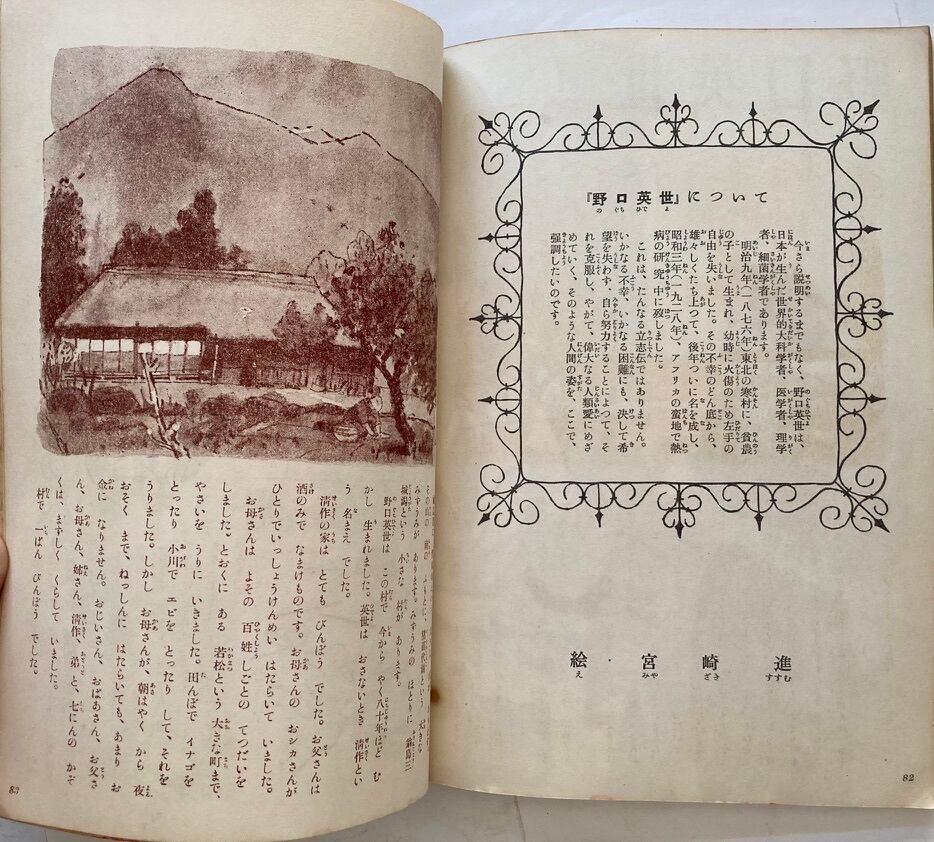 『野口英世』について
今さら説明するまでもなく、野口英世は、
日本が生んだ世界的大科学者、医学者、理学
者、細菌学者であります。
明治九年(一八七六年)東北の寒村に、貧農
の子として生まれ、幼時に火傷のため左手の
自由を失いました。その不幸のどん底から、
雄々しくたち上つて、後年ついに名を成し、
昭和三年(一九二八年)、アフリカの蛮地で熱
病の研究中に歿しました。
これは、たんなる立志伝ではありません。
いかなる不幸、いかなる困難にも、決して希
望を失わず、自ら努力することによつて、そ
れを克服し、やがて、偉大なる人類愛にめざ
めていく、そのような人間の姿を、ここで、
強調したいのです。
絵・宮崎進
82
みずうみが あります。みずうみの ほとりに 翁島三
城潟という 小さな 村が あります。
野口英世は この村で 今から やく八十年ほど む
かし 生まれました。英世は おさないとき 清作とい
う 名まえ でした。
清作の家は とても びんぼう でした。お父さんは
酒のみで なまけものです。お母さんの おシカさんが
ひとりでいっしょうけんめい はたらいて いました。
お母さんは よその 百姓しごとの てつだいを
しました。とおくに ある 若松という 大きな町まで、
やさいを うりに いきました。田んぼで イナゴを
とったり 小川で エビを とったり して、それを
うりました。しかし お母さんが、朝はやく から 夜
おそく まで、ねっしんに はたらいても、あまり お
金に なりません。おじいさん、おばあさん、お父さ
ん、お母さん、姉さん、清作、弟 と、七にんの かぞ
くは まずしく くらして いました。
村で 一ばん びんぼう でした。
83